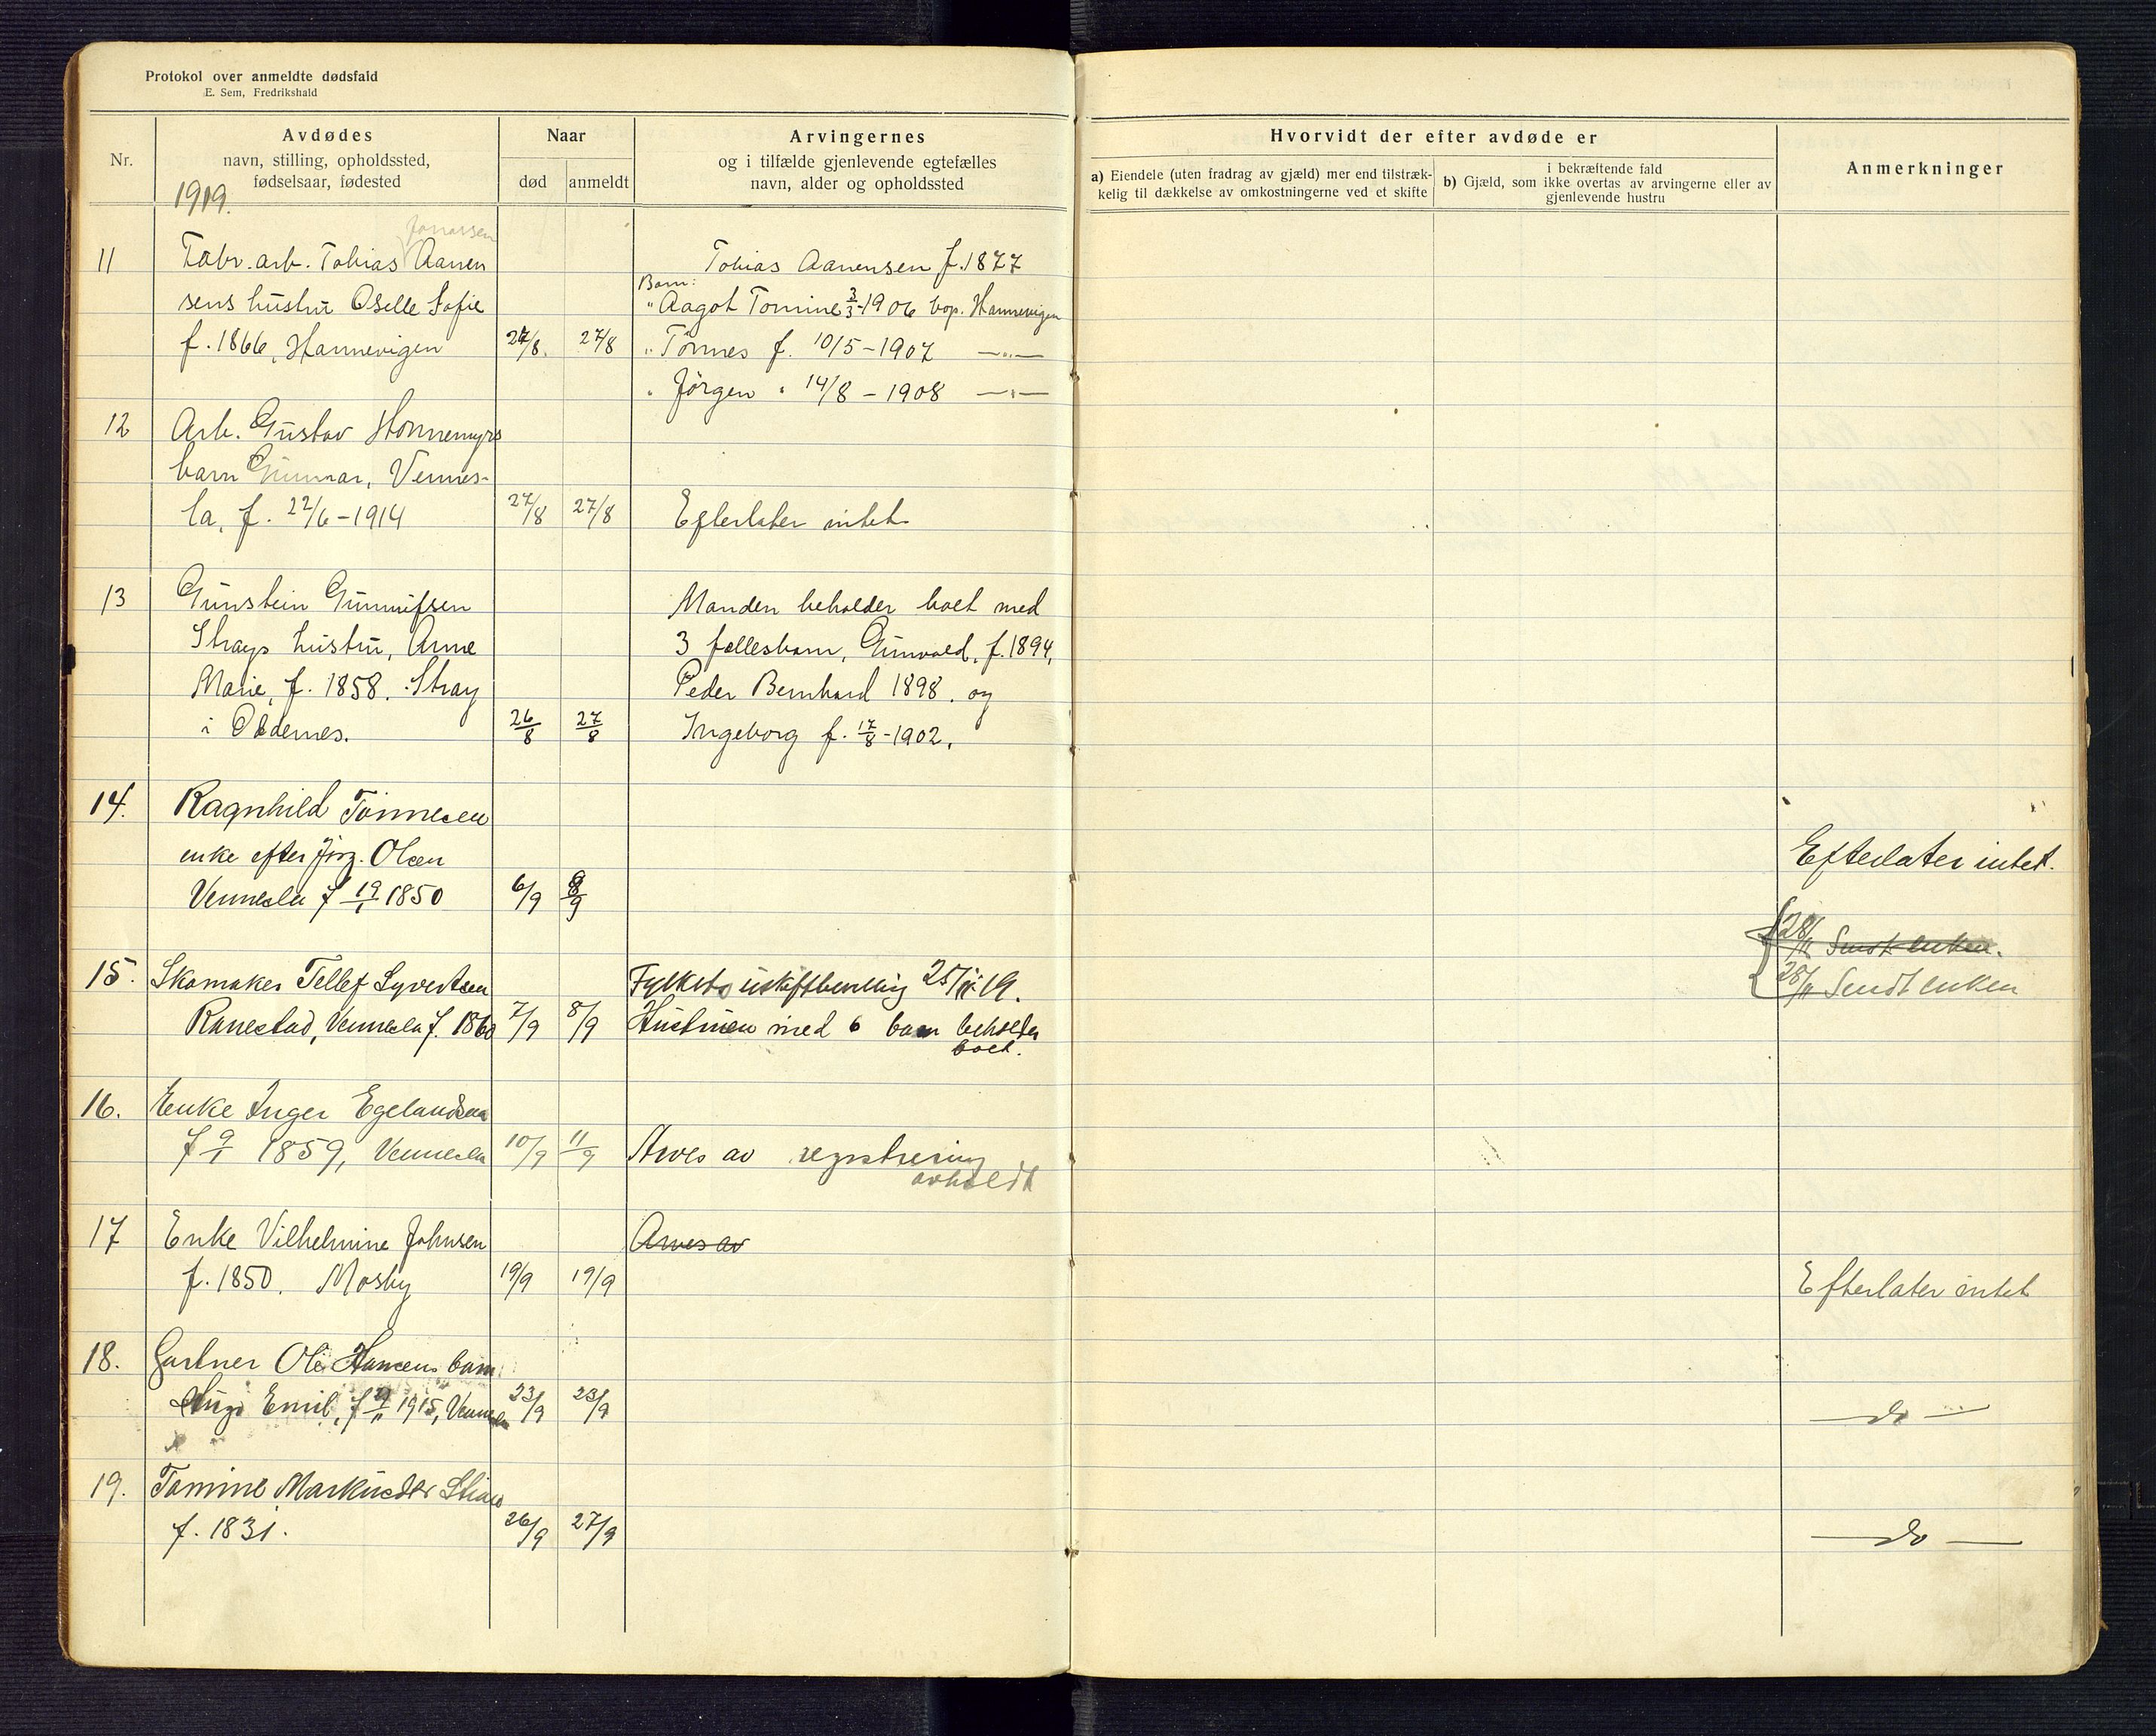 Protokol over anmeldte dødsfald
E. Sem, Fredrikshald
Nr.
Avdødes
navn, stilling, opholdssted,
fødselsaar, fødested
1919.
Naar
død
anmeldt
Arvingernes
og i tilfælde gjenlevende egtefælles
navn, alder og opholdssted
Hvorvidt der efter avdøde er
a) Eiendele (uten fradrag av gjæld) mer end tilstræk-
kelig til dækkelse av omkostningerne ved et skifte
i bekræftende fald
b) Gjæld, som ikke overtas av arvingerne eller av
gjenlevende hustru
Anmerkninger
Jonassen
11 Fabr. arb. Tobias Aanen
sens hustru Oselle Sofie
f. 1866, Hannevigen 24/8. 27/8
Tobias Aanensen f. 1877
Barn:
" Aagot Tomine 3/3-1906 bop. Hannevigen
" Tönnes f. 10/5-1907 —"—
" Jörgen " 14/8-1908 —"—
12 Arb. Gustav Honnemyrs
barn Gunnar, Vennes-
la, f. 22/6-1914 27/8 27/8 Efterlater intet
13 Gunstein Gunnufsen
Strays hustru, Anne
Marie, f. 1858. Stray
i Oddernes. 26/8 27/8
Manden beholder boet med
3 fællesbarn, Gunvald, f. 1894,
Peder Bernhard 1898. og
Ingeborg f. 17/8-1902.
14. Ragnhild Tönnesen
enke efter Jörg. Olsen
Vennesla f 19/1 1850 6/9 8/9
Efterlater intet.
28/11 Sendt enken.
28/11 Sendt enken
15. Skomaker Tellef Syvertsen
Ranestad, Vennesla f. 1860 7/9 8/9
Fylkets uskiftbevillig 25/11 19.
Hustruen med 6 barn beholder
boet.
16. Enke Inger Egelandsaa
f 9/1 1859, Vennesla 10/9 11/9 Arves av registrering
avholdt
17 Enke Vilhelmine Johnsen Arves av
f. 1850. Mosby 19/9 19/9 Efterlater intet
18. Gartner Ole Hansens barn
Hugo Emil, f 1915, Vennesla 23/9 23/9 — do —
19. Tomine Markusdtr Stiaa
f. 1831. 26/9 27/9 — do —